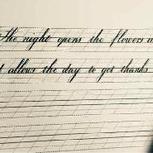 The night opens the flowers
allows the day to get thanks